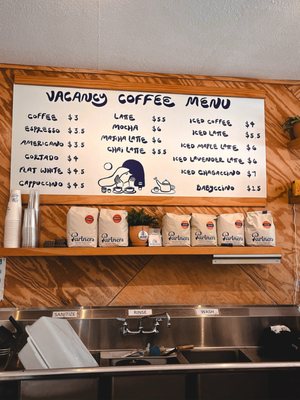 VACANCY COFFEE MENU
COFFEE $3
ESPRESSO $3.5
AMERICANO $3.5
CORTADO $4
FLAT WHITE $4.5
CAPPUCCINO $4.5
LATTE $5.5
MOCHA $6
MATCHA LATTE $6
CHAI LATTE $5.5
ICED COFFEE $4
ICED LATTE $5.5
ICED MAPLE LATTE $6
ICED LAVENDER LATTE $6
ICED CHAGACCINO $7
BABYCCINO $2.5
Partners
Partners
Partners
Partners
Partners
Partners
SANITIZE
RINSE
WASH